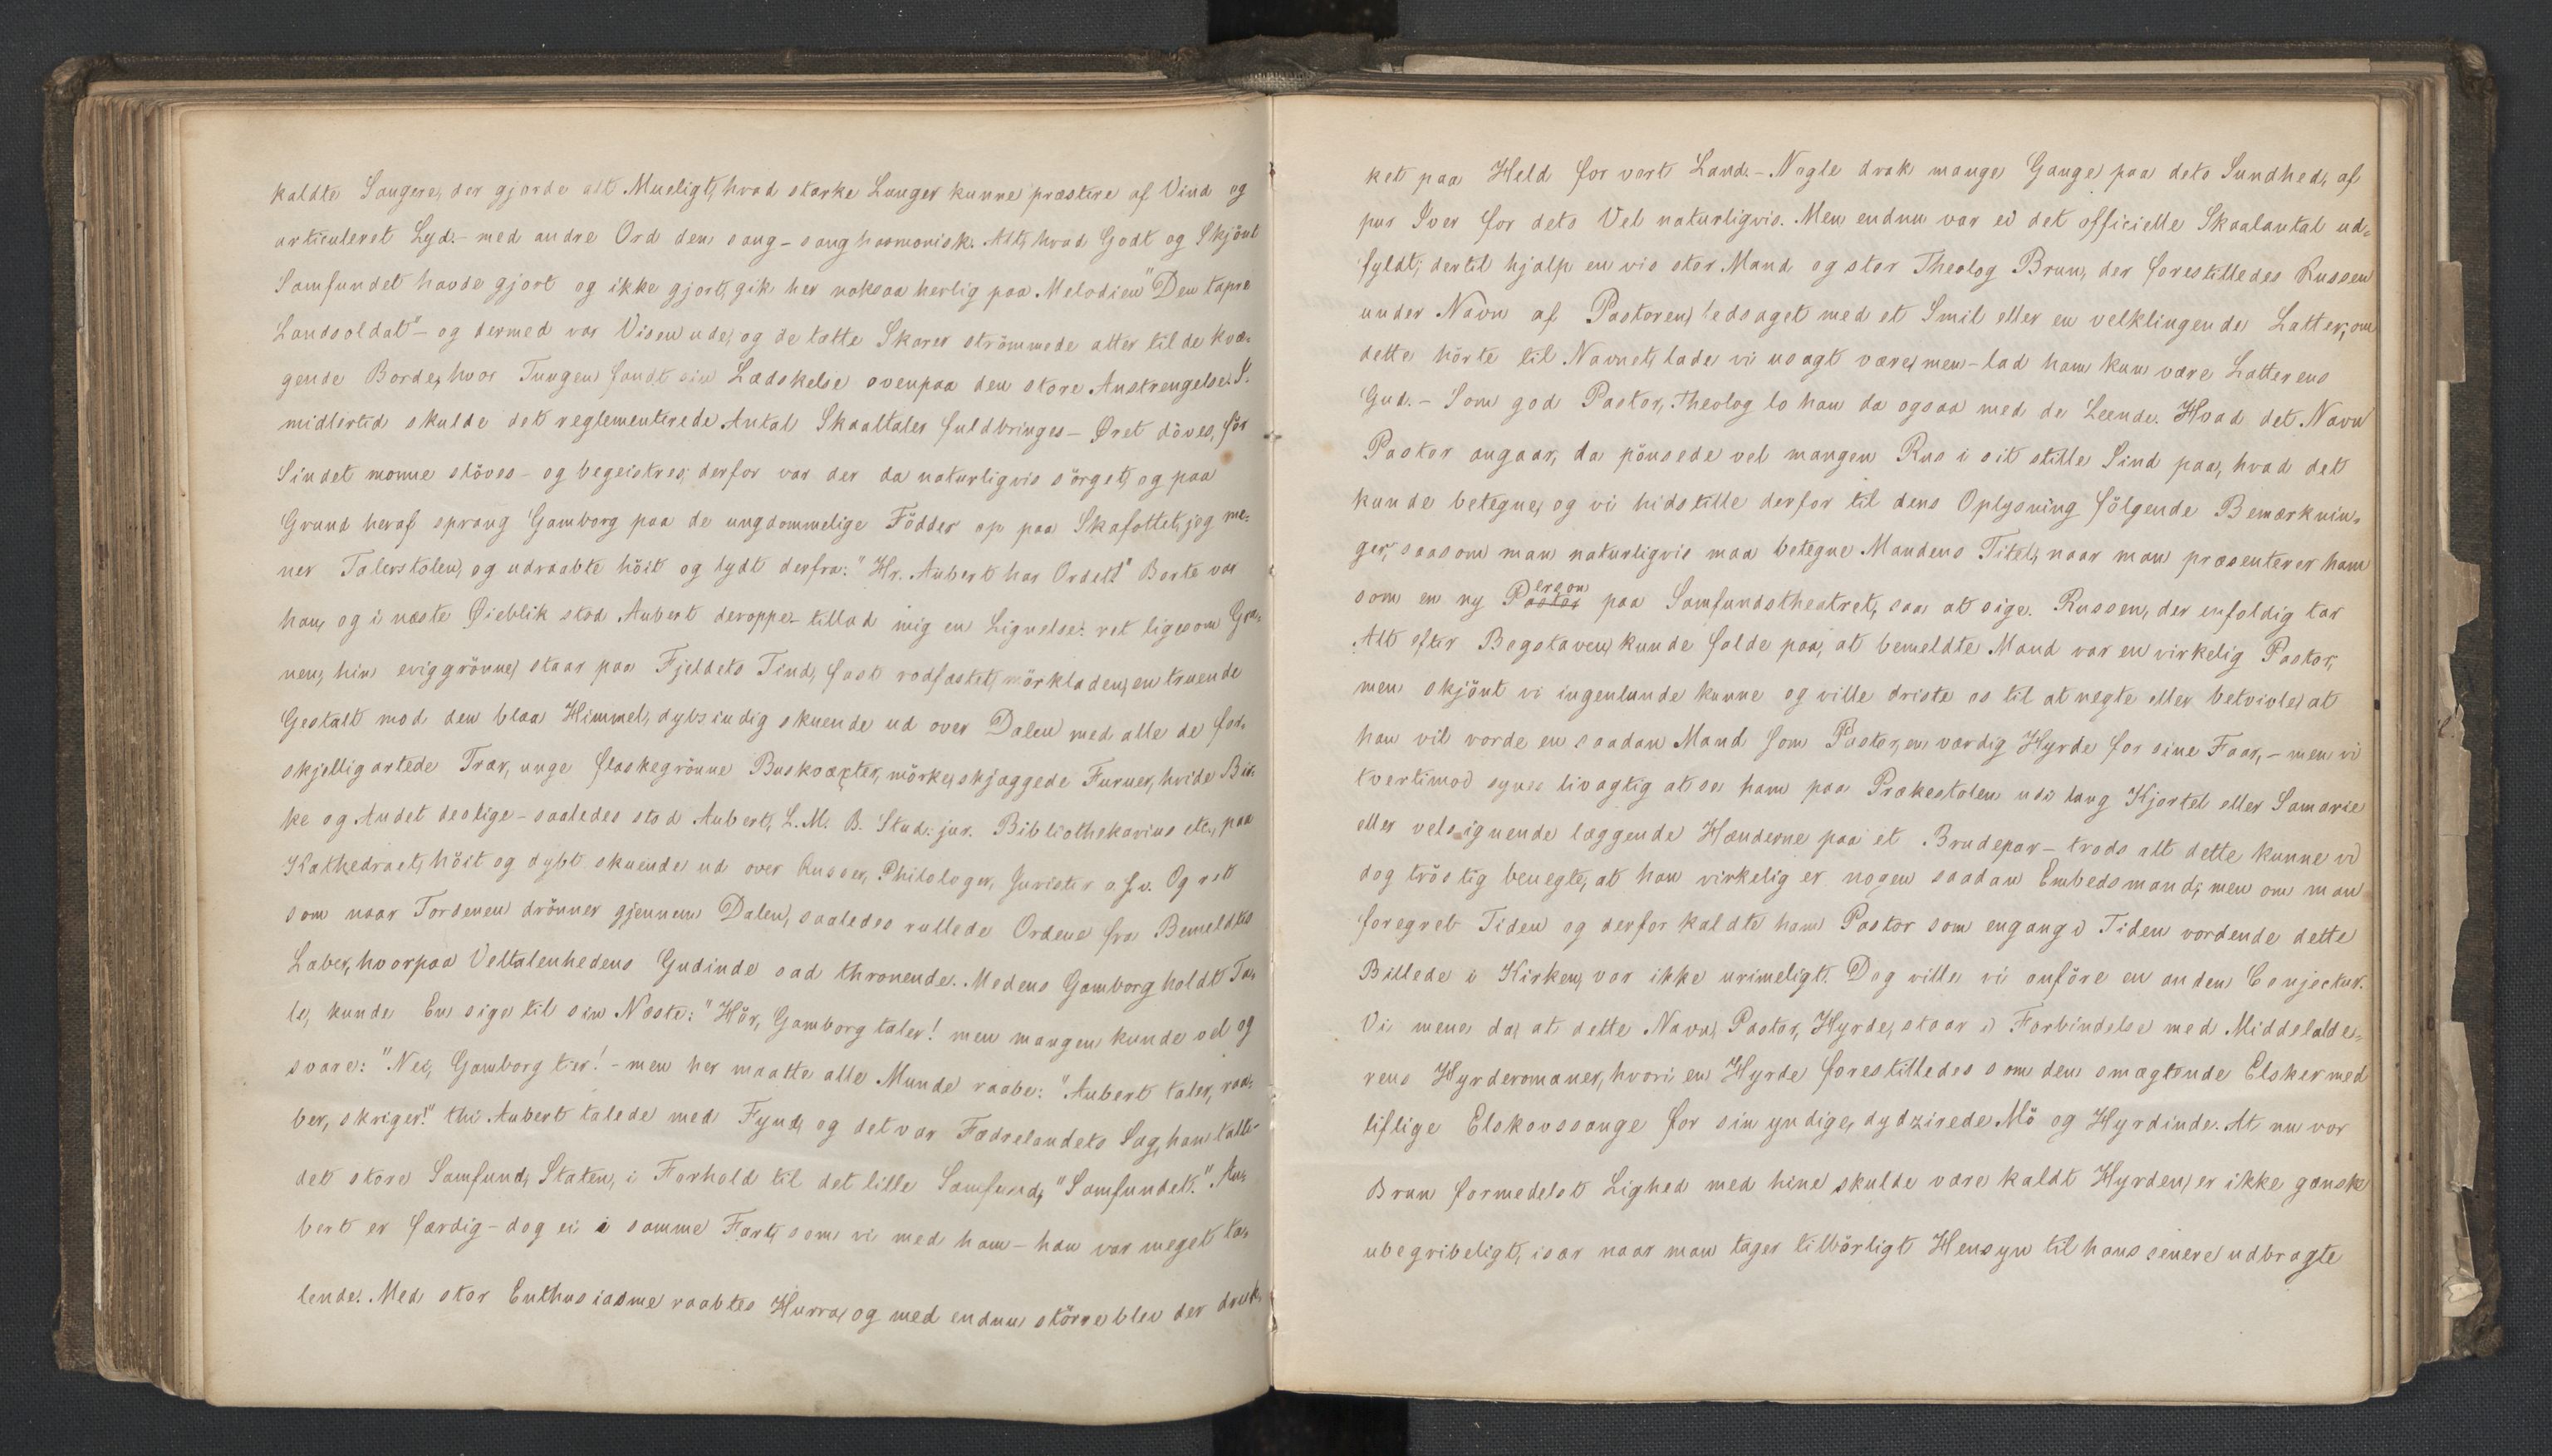 kaldte Sangere, der gjorde alt Mueligt, hvad stærke Lunger kunne præstere af Vind og
articuleret Lyd. - med andre Ord den sang - sang harmonisk. Alt, hvad Godt og Skjönt
Samfundet havde gjort og ikke gjort, gik her noksaa herlig paa Melodien "Den tapre
Landsoldat" - og dermed var Visen ude, og de tætte Skarer strömmede atter til de kvæ-
gende Borde, hvor Tungen fandt sin Lædskelse ovenpaa den store Anstrengelse. I-
midlertid skulde det reglementerede Antal Skaaltaler fuldbringes - Øret döves, för
Sindet monne slöves - og begeistres; derfor var der da naturligvis sörget, og paa
Grund heraf sprang Gamborg paa de ungdommelige Födder op paa Skafottet, jeg me-
ner Talerstolen, og udraabte höit og lydt derfra: "Hr. Aubert har Ordet!" Borte var
han, og i næste Øieblik stod Aubert deroppe - tillad mig en Lignelse: ret ligesom Gra-
nen, hin eviggrönne, staar paa Fjeldets Tind, fast rodfæstet, mörkladen, en truende
Gestalt mod den blaa Himmel, dybsindig skuende ud over Dalen med alle de for-
skjelligartede Træer, unge flaskegrönne Buskvæxter, mörke, skjæggede Furuer, hvide Bir-
ke og Andet deslige - saaledes stod Aubert, L. M. B. Stud. jur. Bibliothekarius etc., paa
Kathedraet, höit og dybt skuende ud over Russer, Philologer, Jurister o. s. v. Og ret
som naar Tordenen drönner gjennem Dalen, saaledes rullede Ordene fra Bemeldtes
Læber, hvorpaa Veltalenhedens Gudinde sad thronende. Medens Gamborg holdt Ta-
le, kunde En sige til sin Næste: "Hör, Gamborg taler! men mangen kunde vel og
svare: "Nei, Gamborg tier! - men her maatte alle Munde raabe: "Aubert taler, raa-
ber, skriger!" thi Aubert talede med Fynd, og det var Fædrelandets Sag, han talte -
det store Samfund, Staten, i Forhold til det lille Samfund, "Samfundet." Au-
bert er færdig - dog ei i samme Fart, som vi med ham - han var meget ta-
lende. Med stor Enthusiasme raabtes Hurra, og med endnu större blev der druk-
ket paa Held for vort Land. - Nogle drak mange Gange paa dets Sundhed, af
pur Iver for dets Vel naturligvis. Men endnu var ei det officielle Skaalantal ud-
fyldt; dertil hjalp en vis stor Mand og stor Theolog Brun, der forestilledes Russen
under Navn af Pastoren, ledsaget med et Smil eller en velklingende Latter; om
dette hörte til Navnet, lade vi usagt være, men - lad ham kun være Latterens
Gud. - Som god Pastor, Theolog lo han da ogsaa med de Leende. Hvad det Navn
Pastor angaar, da pönsede vel mangen Rus i sit stille Sind paa, hvad det
kunde betegne, og vi hidstille derfor til dens Oplysning fölgende Bemærknin-
ger, saasom man naturligvis maa betegne Mandens Titel, naar man præsenterer ham
som en ny Person paa Samfundstheatret, saa at sige. Russen, der enfoldig tar
Alt efter Bogstaven, kunde falde paa, at bemeldte Mand var en virkelig Pastor,
men skjönt vi ingenlunde kunne og ville driste os til at negte eller betvivle, at
han vil vorde en saadan Mand som Pastor, en værdig Hyrde for sine Faar, - men vi
tvertimod synes livagtig at se ham paa Prækestolen udi lang Kjortel eller Samarie
eller velsignende læggende Hænderne paa et Brudepar - trods alt dette kunne vi
dog tröstig benegte, at han virkelig er nogen saadan Embedsmand; men om man
foregreb Tiden og derfor kaldte ham Pastor som engang i Tiden vordende dette
Billede i Kirken, var ikke urimeligt. Dog ville vi anföre en anden Conjectur.
Vi mene da, at dette Navn, Pastor, Hyrde, staar i Forbindelse med Middelalde-
rens Hyrderomaner, hvori en Hyrde forestilledes som den smægtende Elsker med
liflige Elskovssange for sin yndige, dydzirede Mö og Hyrdinde. At nu vor
Brun formedelst Lighed med hine skulde være kaldt Hyrden, er ikke gansk
ubegribeligt, især naar man tager tilbörligt Hensyn til hans senere udbragte